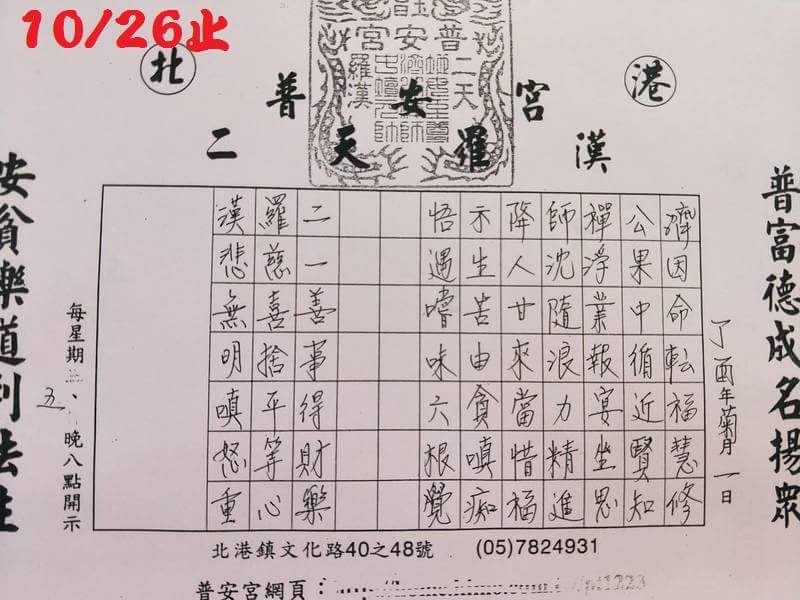 10/26止
北 港
普安宮
二天羅漢
普富德成名揚眾
丁酉年菊月一日
濟因命転福慧修
公果中循近賢知
禪淨業報宴坐思
師沈隨浪力精進
降人甘來當惜福
示生苦由貪嗔痴
悟遇嚐味六根覺
二一善事得財樂
羅慈喜捨平等心
漢悲無明嗔怒重
每星期三、五晚八點開示
安貧樂道利法
北港鎮文化路40之48號 (05)7824931
普安宮網頁：